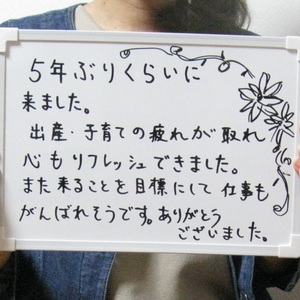 5年ぶりくらいに
来ました。
出産・子育ての疲れが取れ
心もリフレッシュできました。
また来ることを目標にして仕事も
がんばれそうです。ありがとう
ございました。